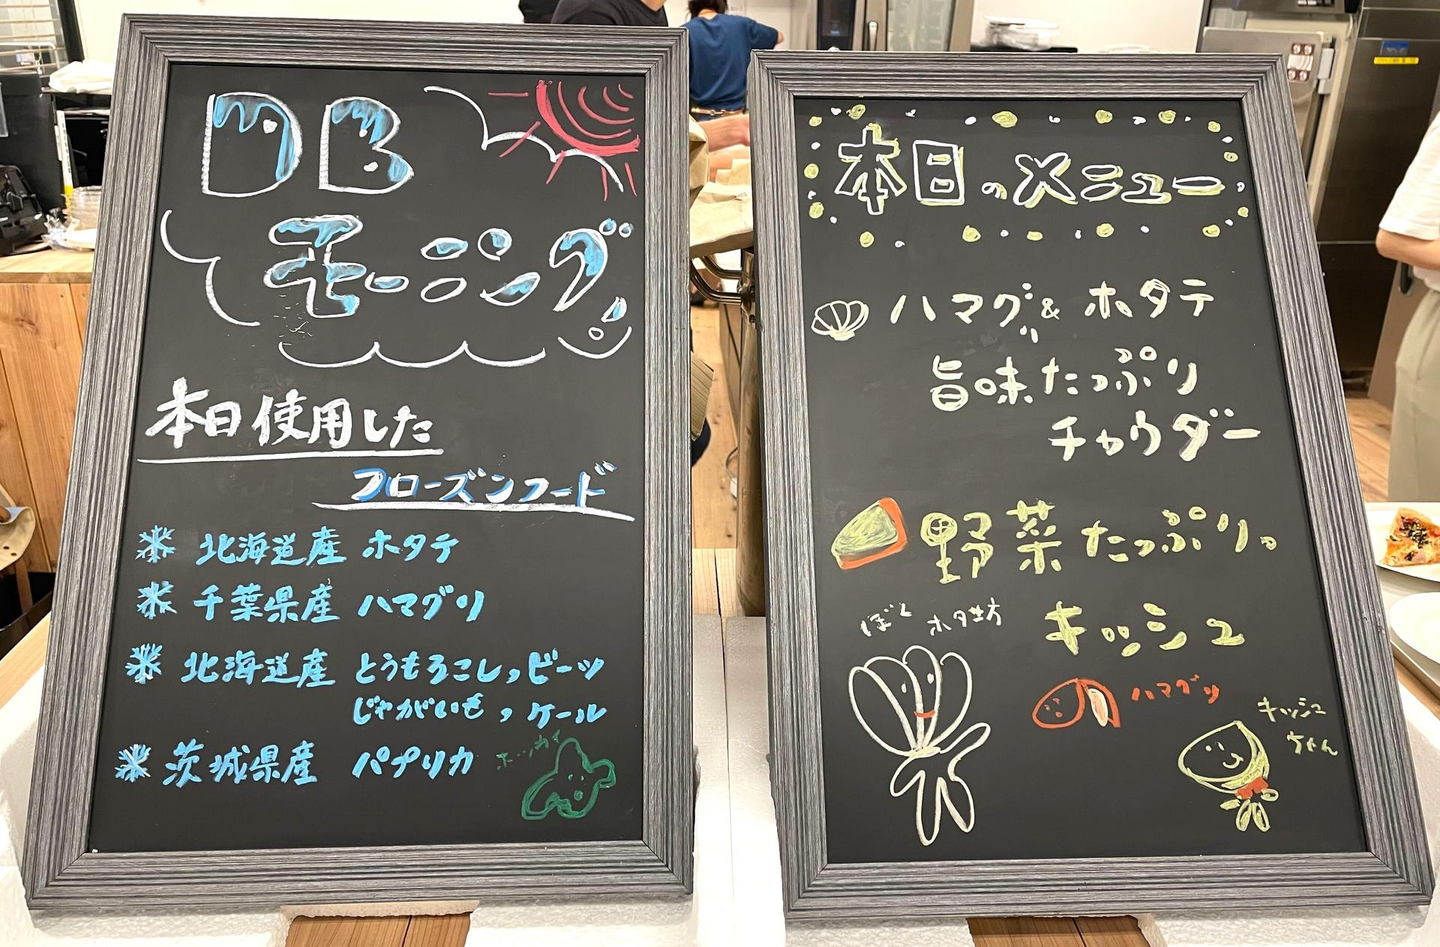 DB
モーニング
本日使用した
フローズンフード
北海道産 ホタテ
千葉県産 ハマグリ
北海道産 とうもろこし、ビーツ
じゃがいも、ケール
茨城県産 パプリカ
ホッカイ
本日のメニュー
ハマグリ&ホタテ
旨味たっぷり
チャウダー
野菜たっぷり。
キッシュ
ぼく ホタ坊
ハマグリ
キッシュ
ちゃん